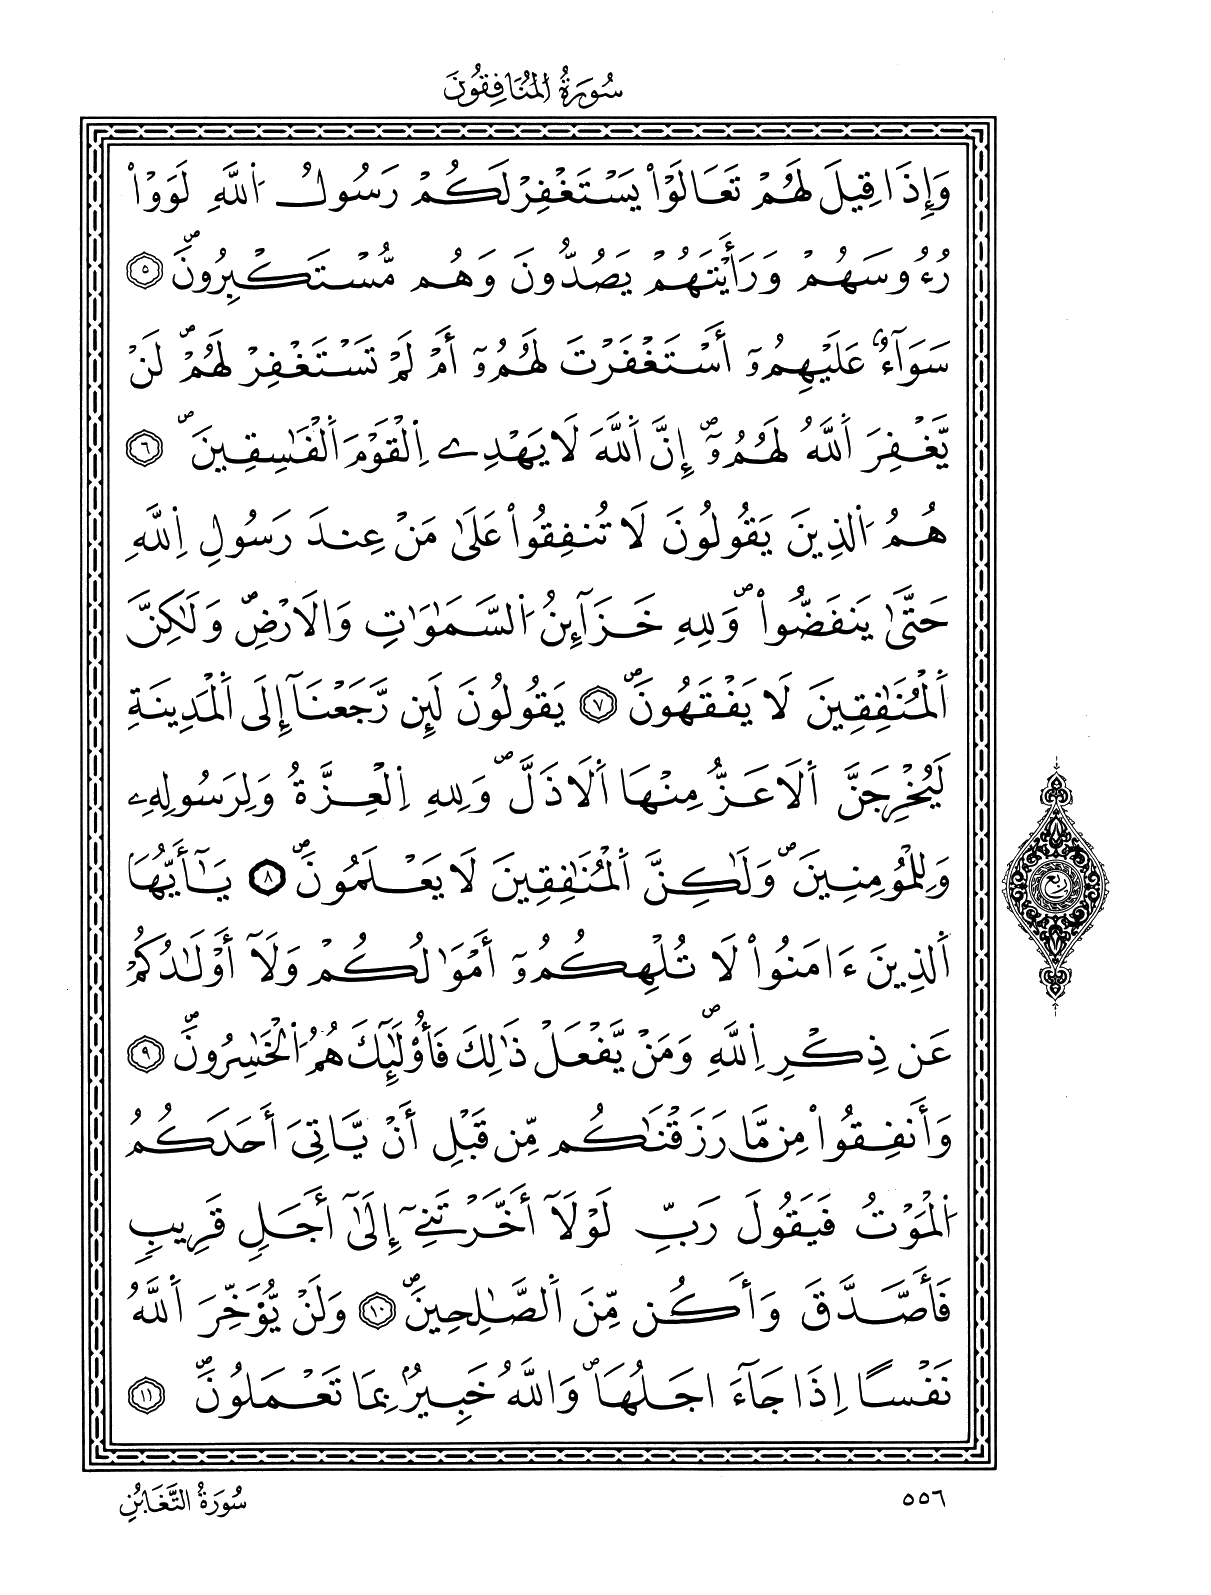 سُورَةُ المُنَافِقُونَ
وَإِذَا قِيلَ لَهُمْ تَعَالَوْاْ يَسْتَغْفِرْ لَكُمْ رَسُولُ اُ۬للَّهِ لَوَوْاْ
رُءُوسَهُمْ وَرَأَيْتَهُمْ يَصُدُّونَ وَهُم مُّسْتَكْبِرُونَۖ ٥
سَوَآءٌ عَلَيْهِمُۥٓ أَسْتَغْفَرْتَ لَهُمُۥٓ أَمْ لَمْ تَسْتَغْفِرْ لَهُمْۖ لَنْ
يَّغْفِرَ اَ۬للَّهُ لَهُمُۥٓۖ إِنَّ اَ۬للَّهَ لَا يَهْدِے اِ۬لْقَوْمَ اَ۬لْفَٰسِقِينَۖ ٦
هُمُ اُ۬لذِينَ يَقُولُونَ لَا تُنفِقُواْ عَلَىٰ مَنْ عِندَ رَسُولِ اِ۬للَّهِ
حَتَّىٰ يَنفَضُّواْۖ وَلِلهِ خَزَآئِنُ اُ۬لسَّمَٰوَٰتِ وَالَارْضِۖ وَلَٰكِنَّ
اَ۬لْمُنَٰفِقِينَ لَا يَفْقَهُونَۖ ٧ يَقُولُونَ لَئِن رَّجَعْنَآ إِلَى اَ۬لْمَدِينَةِ
لَيُخْرِجَنَّ اَ۬لَاعَزُّ مِنْهَا اَ۬لَاذَلَّۖ وَلِلهِ اِ۬لْعِزَّةُ وَلِرَسُولِهِۦ
وَلِلْمُؤْمِنِينَۖ وَلَٰكِنَّ اَ۬لْمُنَٰفِقِينَ لَا يَعْلَمُونَۖ ٨ يَٰٓأَيُّهَا
اَ۬لذِينَ ءَامَنُواْ لَا تُلْهِكُمُۥٓ أَمْوَٰلُكُمْ وَلَآ أَوْلَٰدُكُمْ
عَن ذِكْرِ اِ۬للَّهِۖ وَمَنْ يَّفْعَلْ ذَٰلِكَ فَأُوْلَٰٓئِكَ هُمُ اُ۬لْخَٰسِرُونَۖ ٩
وَأَنفِقُواْ مِن مَّا رَزَقْنَٰكُم مِّن قَبْلِ أَنْ يَّاتِىَ أَحَدَكُمُ
اُ۬لْمَوْتُ فَيَقُولَ رَبِّ لَوْلَآ أَخَّرْتَنِےٓ إِلَىٰٓ أَجَلٍ قَرِيبٍ
فَأَصَّدَّقَ وَأَكُن مِّنَ اَ۬لصَّٰلِحِينَۖ ١٠ وَلَنْ يُّؤَخِّرَ اَ۬للَّهُ
نَفْسًا اِذَا جَآءَ اجَلُهَاۖ وَاللَّهُ خَبِيرٌۢ بِمَا تَعْمَلُونَۖ ١١
ربع
٥٥٦
سُورَةُ التَّغَابُنِ